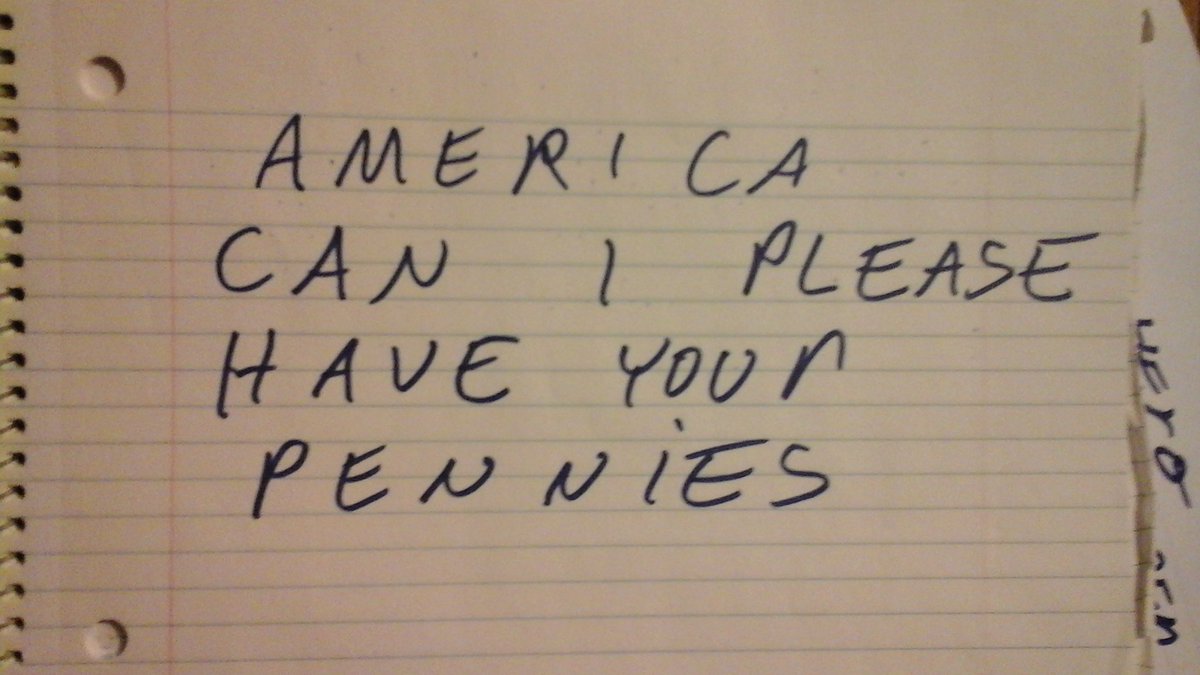 AMERICA
CAN I PLEASE
HAVE YOUr
PENNiES